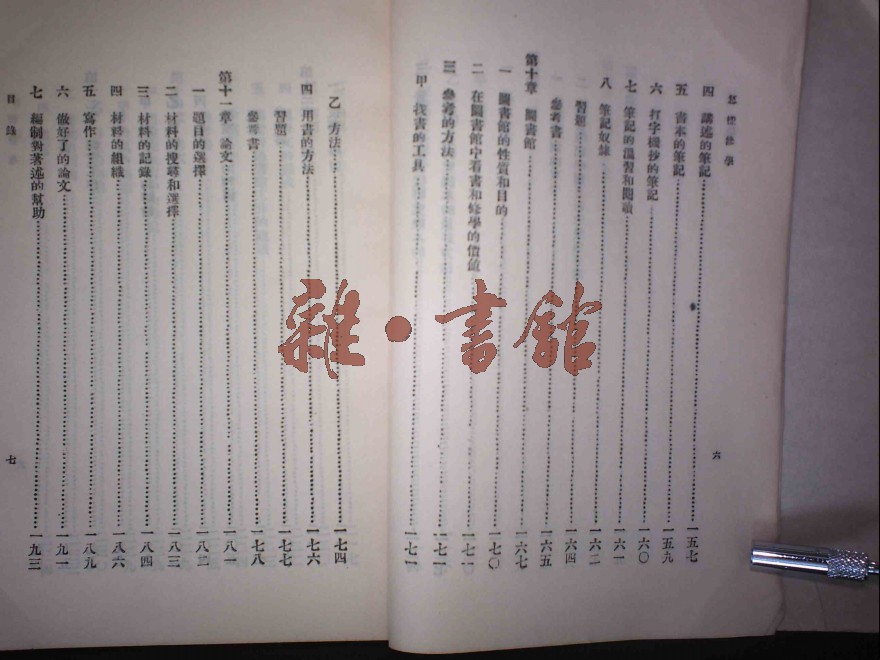 怎樣修學
四 講述的筆記……一五七
五 書本的筆記……一五九
六 打字機抄的筆記……一六〇
七 筆記的溫習和閱讀……一六一
八 筆記奴隸……一六二
習題……一六四
參考書……一六五
第十章 圖書館……一六七
一 圖書館的性質和目的……一七〇
二 在圖書館中看書和修學的價值……一七一
三 參考的方法……一七一
甲 找書的工具……一七一
六
乙 方法……一七四
四 用書的方法……一七六
習題……一七七
參考書……一七八
第十一章 論文……一八一
一 題目的選擇……一八二
二 材料的搜尋和選擇……一八三
三 材料的記錄……一八四
四 材料的組織……一八六
五 寫作……一八九
六 做好了的論文……一九一
七 編制對著述的幫助……一九三
目錄
七
雜·書館